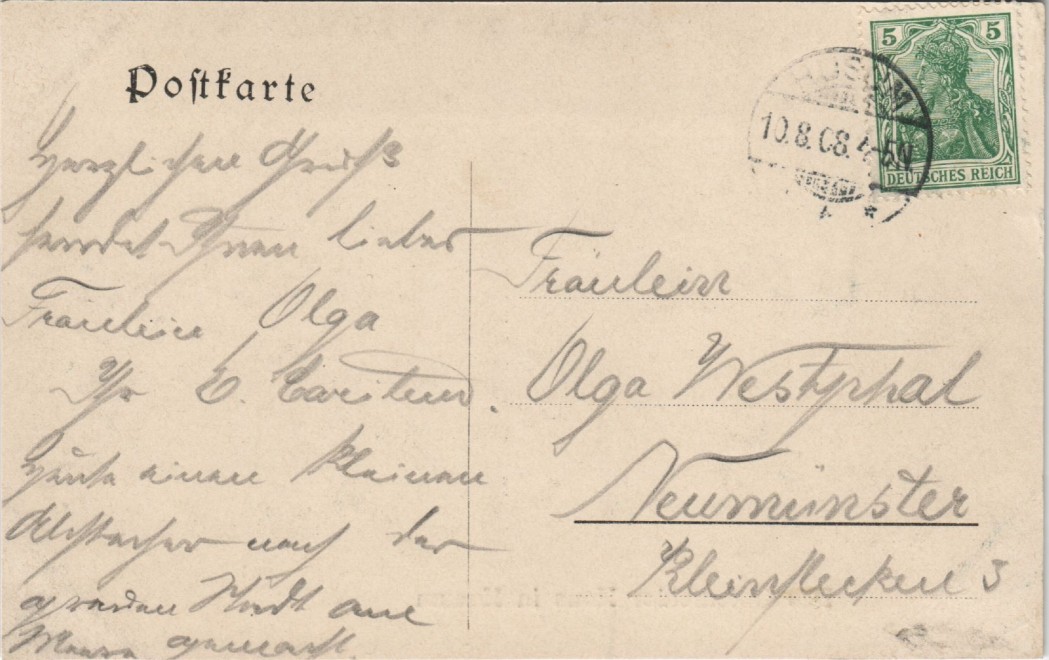 Postkarte
5 5
DEUTSCHES REICH
HUSUM
10.8.08. 4-5N
Herzlichen Gruß
sendet Ihnen liebes
Fräulein Olga
Ihr E. Carstens.
Heute einen kleinen
Abstecher nach der
grauen Stadt am
Meere gemacht.
Fräulein
Olga Westphal
Neumünster
Kleinflecken 5